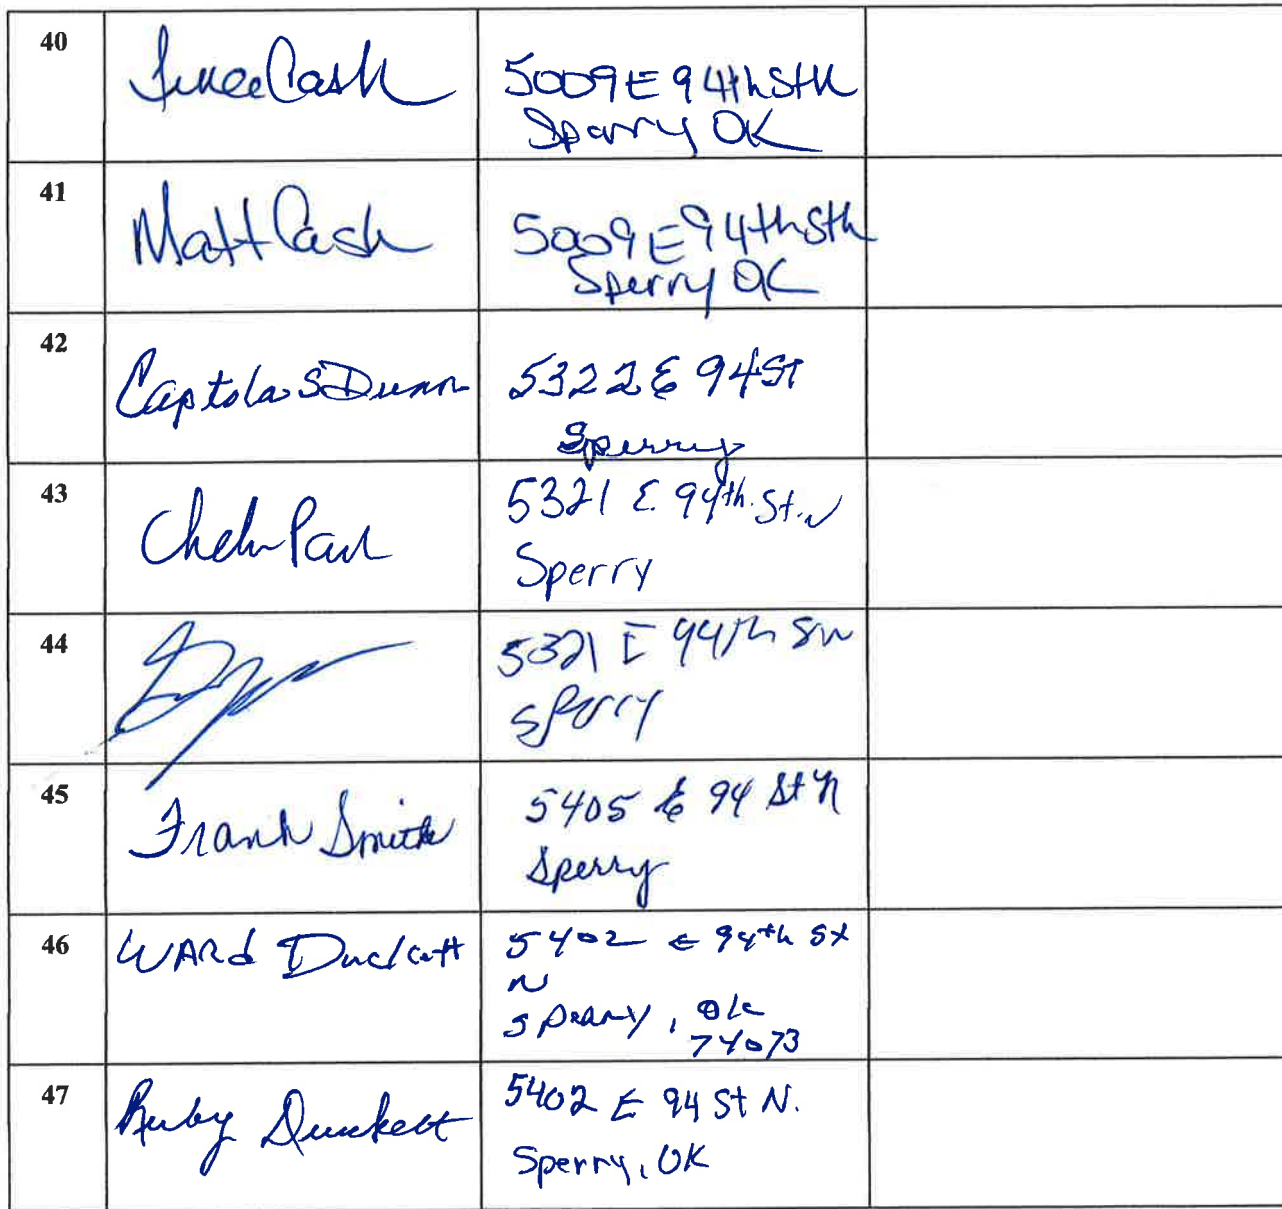 40
Cash
5009 E 94th St N
Sperry OK
41
Matt Cash
5009 E 94th St N
Sperry OK
42
Captola S Dunn
5322 E 94 St
Sperry
43
5321 E. 94th. St. N
Sperry
44
5321 E 94th SN
Sperry
45
Frank Smith
5405 E 94 St N
Sperry
46
WARd Duckett
5402 E 94th St
N
Sperry, Ok
74073
47
Ruby Duckett
5402 E 94 St N.
Sperry, OK